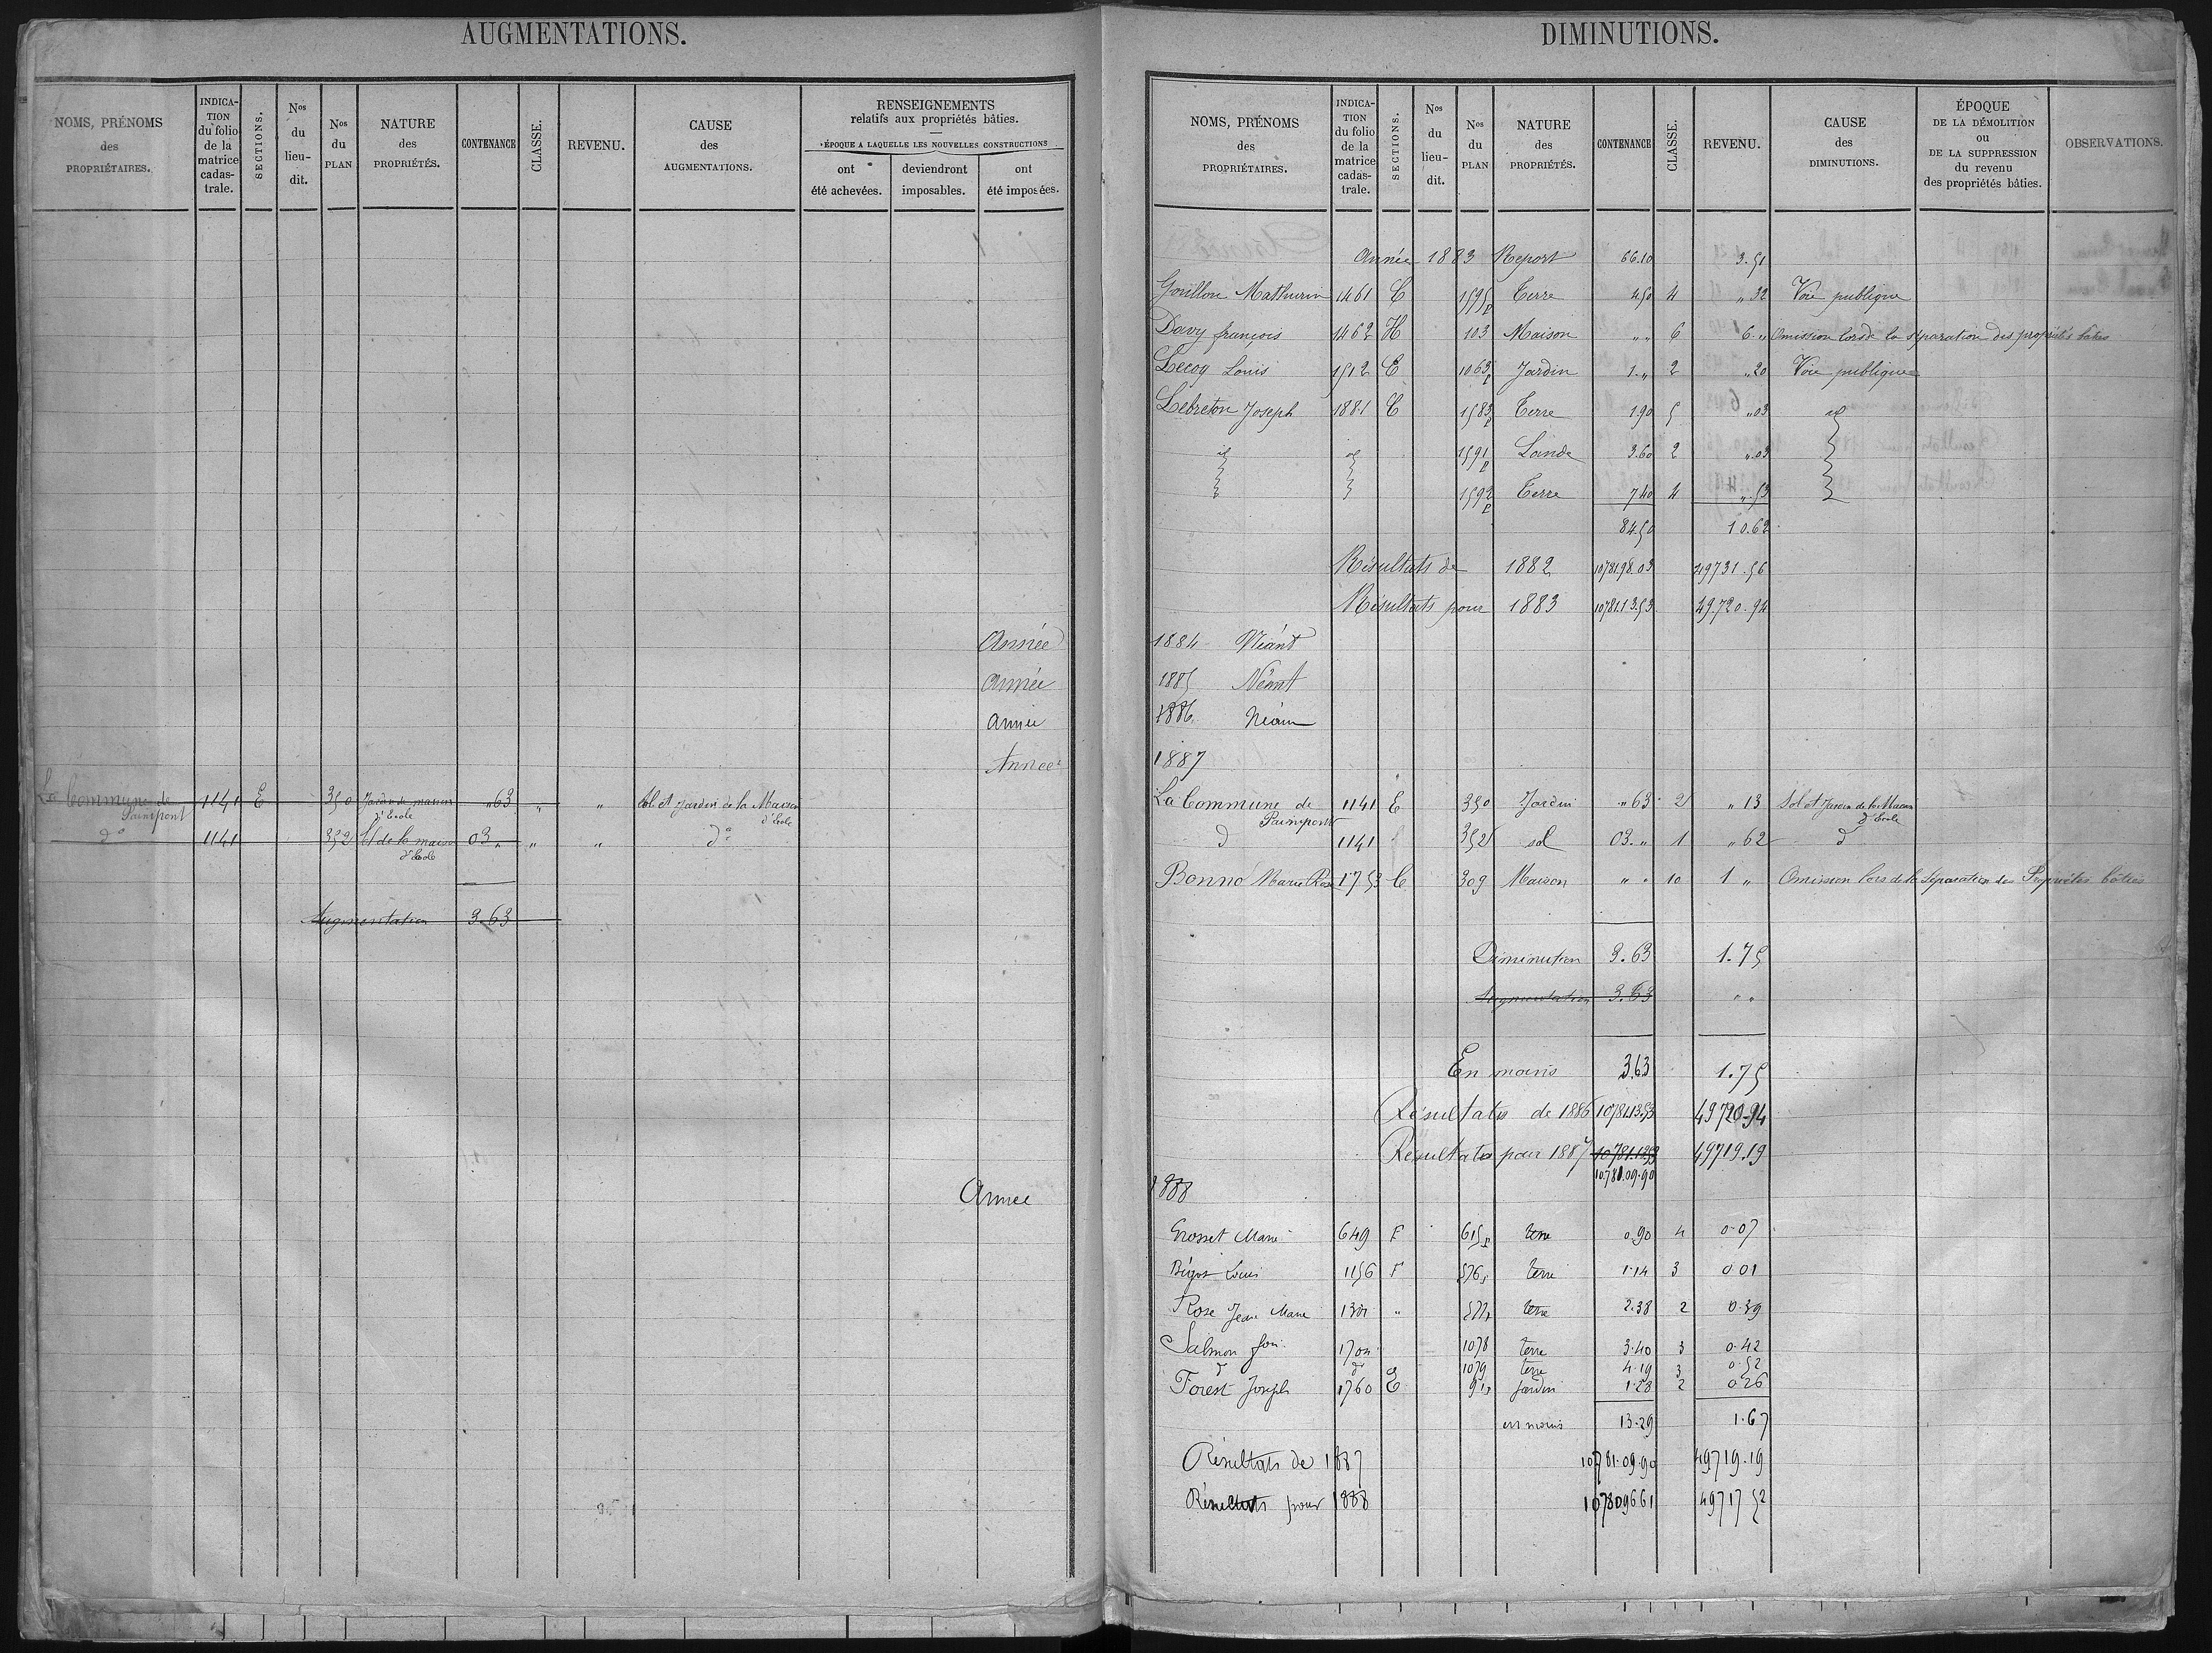 AUGMENTATIONS.
NOMS, PRÉNOMS des PROPRIÉTAIRES. INDICATION du folio de la matrice cadastrale. SECTIONS. Nos du lieu-dit. Nos du PLAN NATURE des PROPRIÉTÉS. CONTENANCE CLASSE. REVENU. CAUSE des AUGMENTATIONS. RENSEIGNEMENTS relatifs aux propriétés bâties. ÉPOQUE A LAQUELLE LES NOUVELLES CONSTRUCTIONS ont été achevées. deviendront imposables. ont été imposées.
Année
Année
Année
Année
La Commune de Paimpont 1141 E 350 Jardin de maison d'Ecole " 63 " " Sol et Jardin de la Maison d'Ecole
do 1141 352 Sol de la maison d'Ecole 03 " " " do
Augmentation 3.63
Année
DIMINUTIONS.
NOMS, PRÉNOMS des PROPRIÉTAIRES. INDICATION du folio de la matrice cadastrale. SECTIONS. Nos du lieu-dit. Nos du PLAN NATURE des PROPRIÉTÉS. CONTENANCE CLASSE. REVENU. CAUSE des DIMINUTIONS. ÉPOQUE DE LA DÉMOLITION ou DE LA SUPPRESSION du revenu des propriétés bâties. OBSERVATIONS.
Année 1883 Report 66.10 3.51
Gorillon Mathurin 1461 C 1595p Terre 4.50 4 " 32 Voie publique
Davy françois 1462 H 103 Maison " " 6 6. " Omission lors de la séparation des propriétés baties
Lecoq Louis 1512 C 1063p Jardin 1. " 2 " 20 Voie publique
Lebreton Joseph 1881 C 1583p Terre 1.90 5 " 03 id
id id 1591p Lande 3.60 2 " 03
1592p Terre 7.40 4 " 53
84.50 10.62
Résultats de 1882 10781.98.03 49731.56
Résultats pour 1883 10781.13.53 49.720.94
1884 Néant
1885 Néant
1886. Néant
1887
La Commune de Paimpont 1141 E 350 Jardin " 63 2 " 13 Sol et Jardin de la Maison d'Ecole
d 1141 352 sol 03. " 1 " 62 d
Bonno Marie Rose 1753 C 309 Maison " " 10 1 " Omission lors de la Séparation des Propriétés bâties
Diminution 3.63 1.75
Augmentation 3.63 " "
En moins 3.63 1.75
Résultats de 1886 10781.13.53 49720.94
Résultats pour 1887 10781.13.53 49719.19
10.781.09.90
1888
Grosset Marie 649 F 615p terre 0.90 4 0.07
Bigot Louis 1156 F 576p terre 1.14 3 0.01
Rose Jean Marie " terre 2.38 2 0.39
Salmon 1704 1078 terre 3.40 3 0.42
d d 1079 terre 4.19 3 0.52
Forest Joseph 1760 E jardin 1.28 2 0.26
en moins 13.29 1.67
Résultats de 1887 10781.09.90 49719.19
Résultats pour 1888 107809661 49717 52